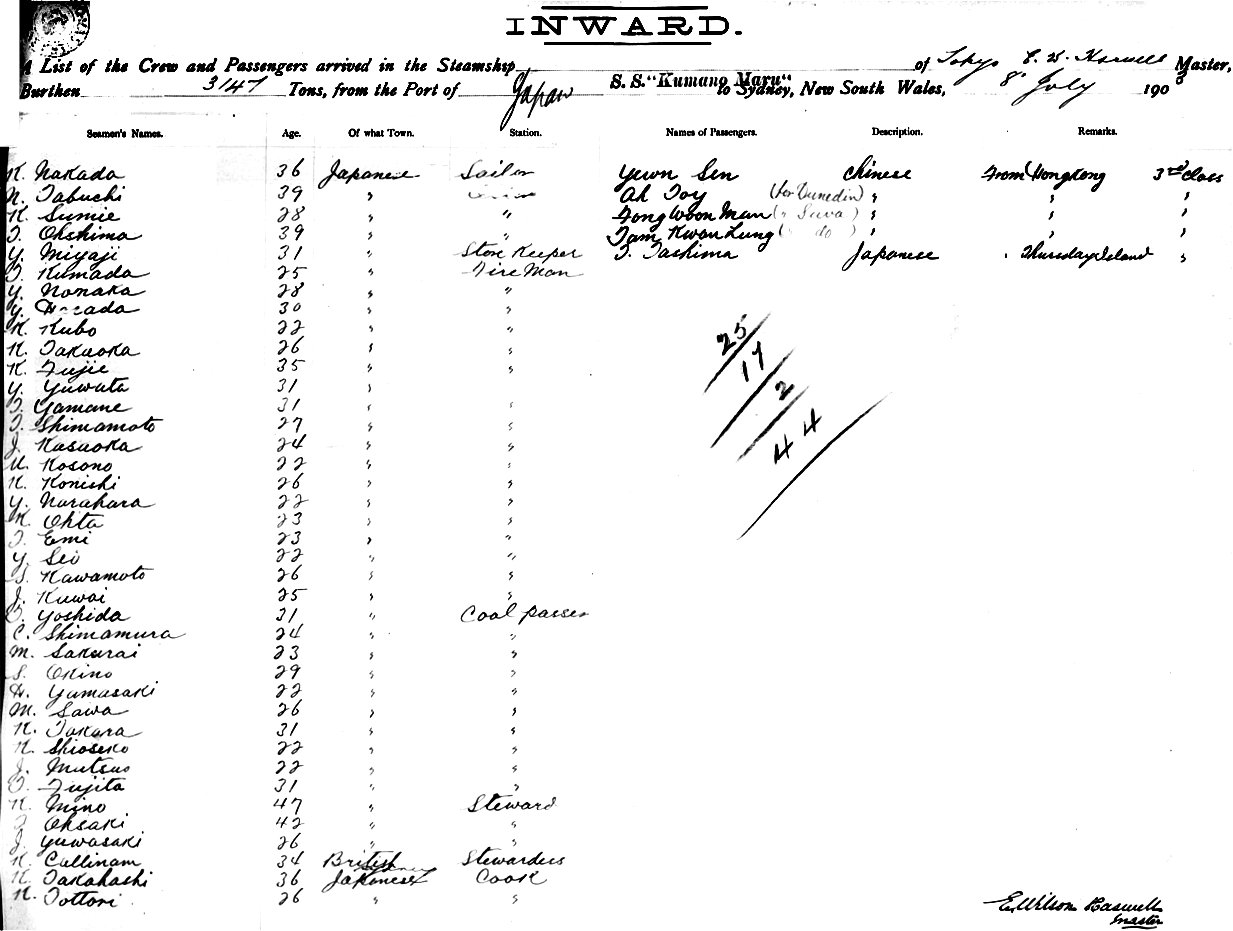 INWARD.
A List of the Crew and Passengers arrived in the Steamship S.S. "Kumano Maru" of Tokyo Master,
Burthen 3147 Tons, from the Port of Japan to Sydney, New South Wales, 8 July 1908
Seamen's Names. Age. Of what Town. Station. Names of Passengers. Description. Remarks.
K. Nakada 36 Japanese Sailor Yuwn Sen Chinese From HongKong 3rd Class
N. Tabuchi 39 " Ah Toy (for Dunedin) " " "
K. Sumie 28 " " Fong Woon Man (" Suva) " " "
T. Ohshima 39 " " Tam Kwan Lung (" do) " " "
Y. Miyaji 31 " Store Keeper T. Tashima Japanese " Thursday Island "
T. Kumada 25 " Fire Man
Y. Nonaka 28 " "
Y. Harada 30 " "
K. Kubo 22 " "
K. Takaoka 26 " "
K. Fujie 35 " "
Y. Yuwata 31 "
T. Yamane 31 " "
T. Shimamoto 27 " "
J. Kasaoka 24 " "
U. Kosono 22 " "
K. Konishi 26 " "
Y. Narahara 22 " "
K. Ohta 23 " "
T. Emi 23 " "
Y. Sei 22 " "
S. Kawamoto 26 " "
J. Kuwai 25 " "
Yoshida 31 " Coal passer
C. Shimamura 24 " "
M. Sakurai 23 " "
S. Okino 29 " "
H. Yamasaki 22 " "
M. Sawa 26 " "
K. Takara 31 " "
K. Shioseko 22 " "
J. Mutsuo 22 " "
Fujita 31 " "
K. Mino 47 " Steward
T. Ohsaki 42 " "
J. Yuwasaki 26 " "
K. Cullinam 34 British Stewardess
K. Takahashi 36 Japanese Cook
K. Tottori 26 " "
25
17
2
44
E. Wilson Haswell
Master